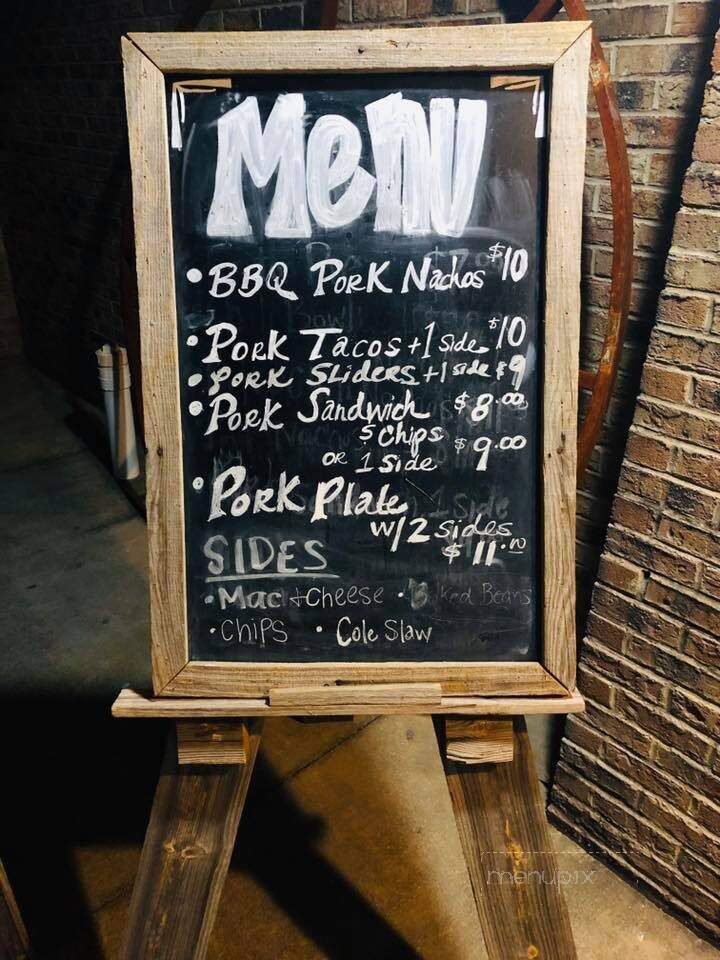 Menu
• BBQ Pork Nachos $10
• Pork Tacos + 1 side $10
• Pork Sliders + 1 side $9
• Pork Sandwich $8.00
$ Chips
or 1 Side $9.00
• Pork Plate
w/2 sides
$11.00
SIDES
• Mac + Cheese • Baked Beans
• Chips • Cole Slaw
menupix